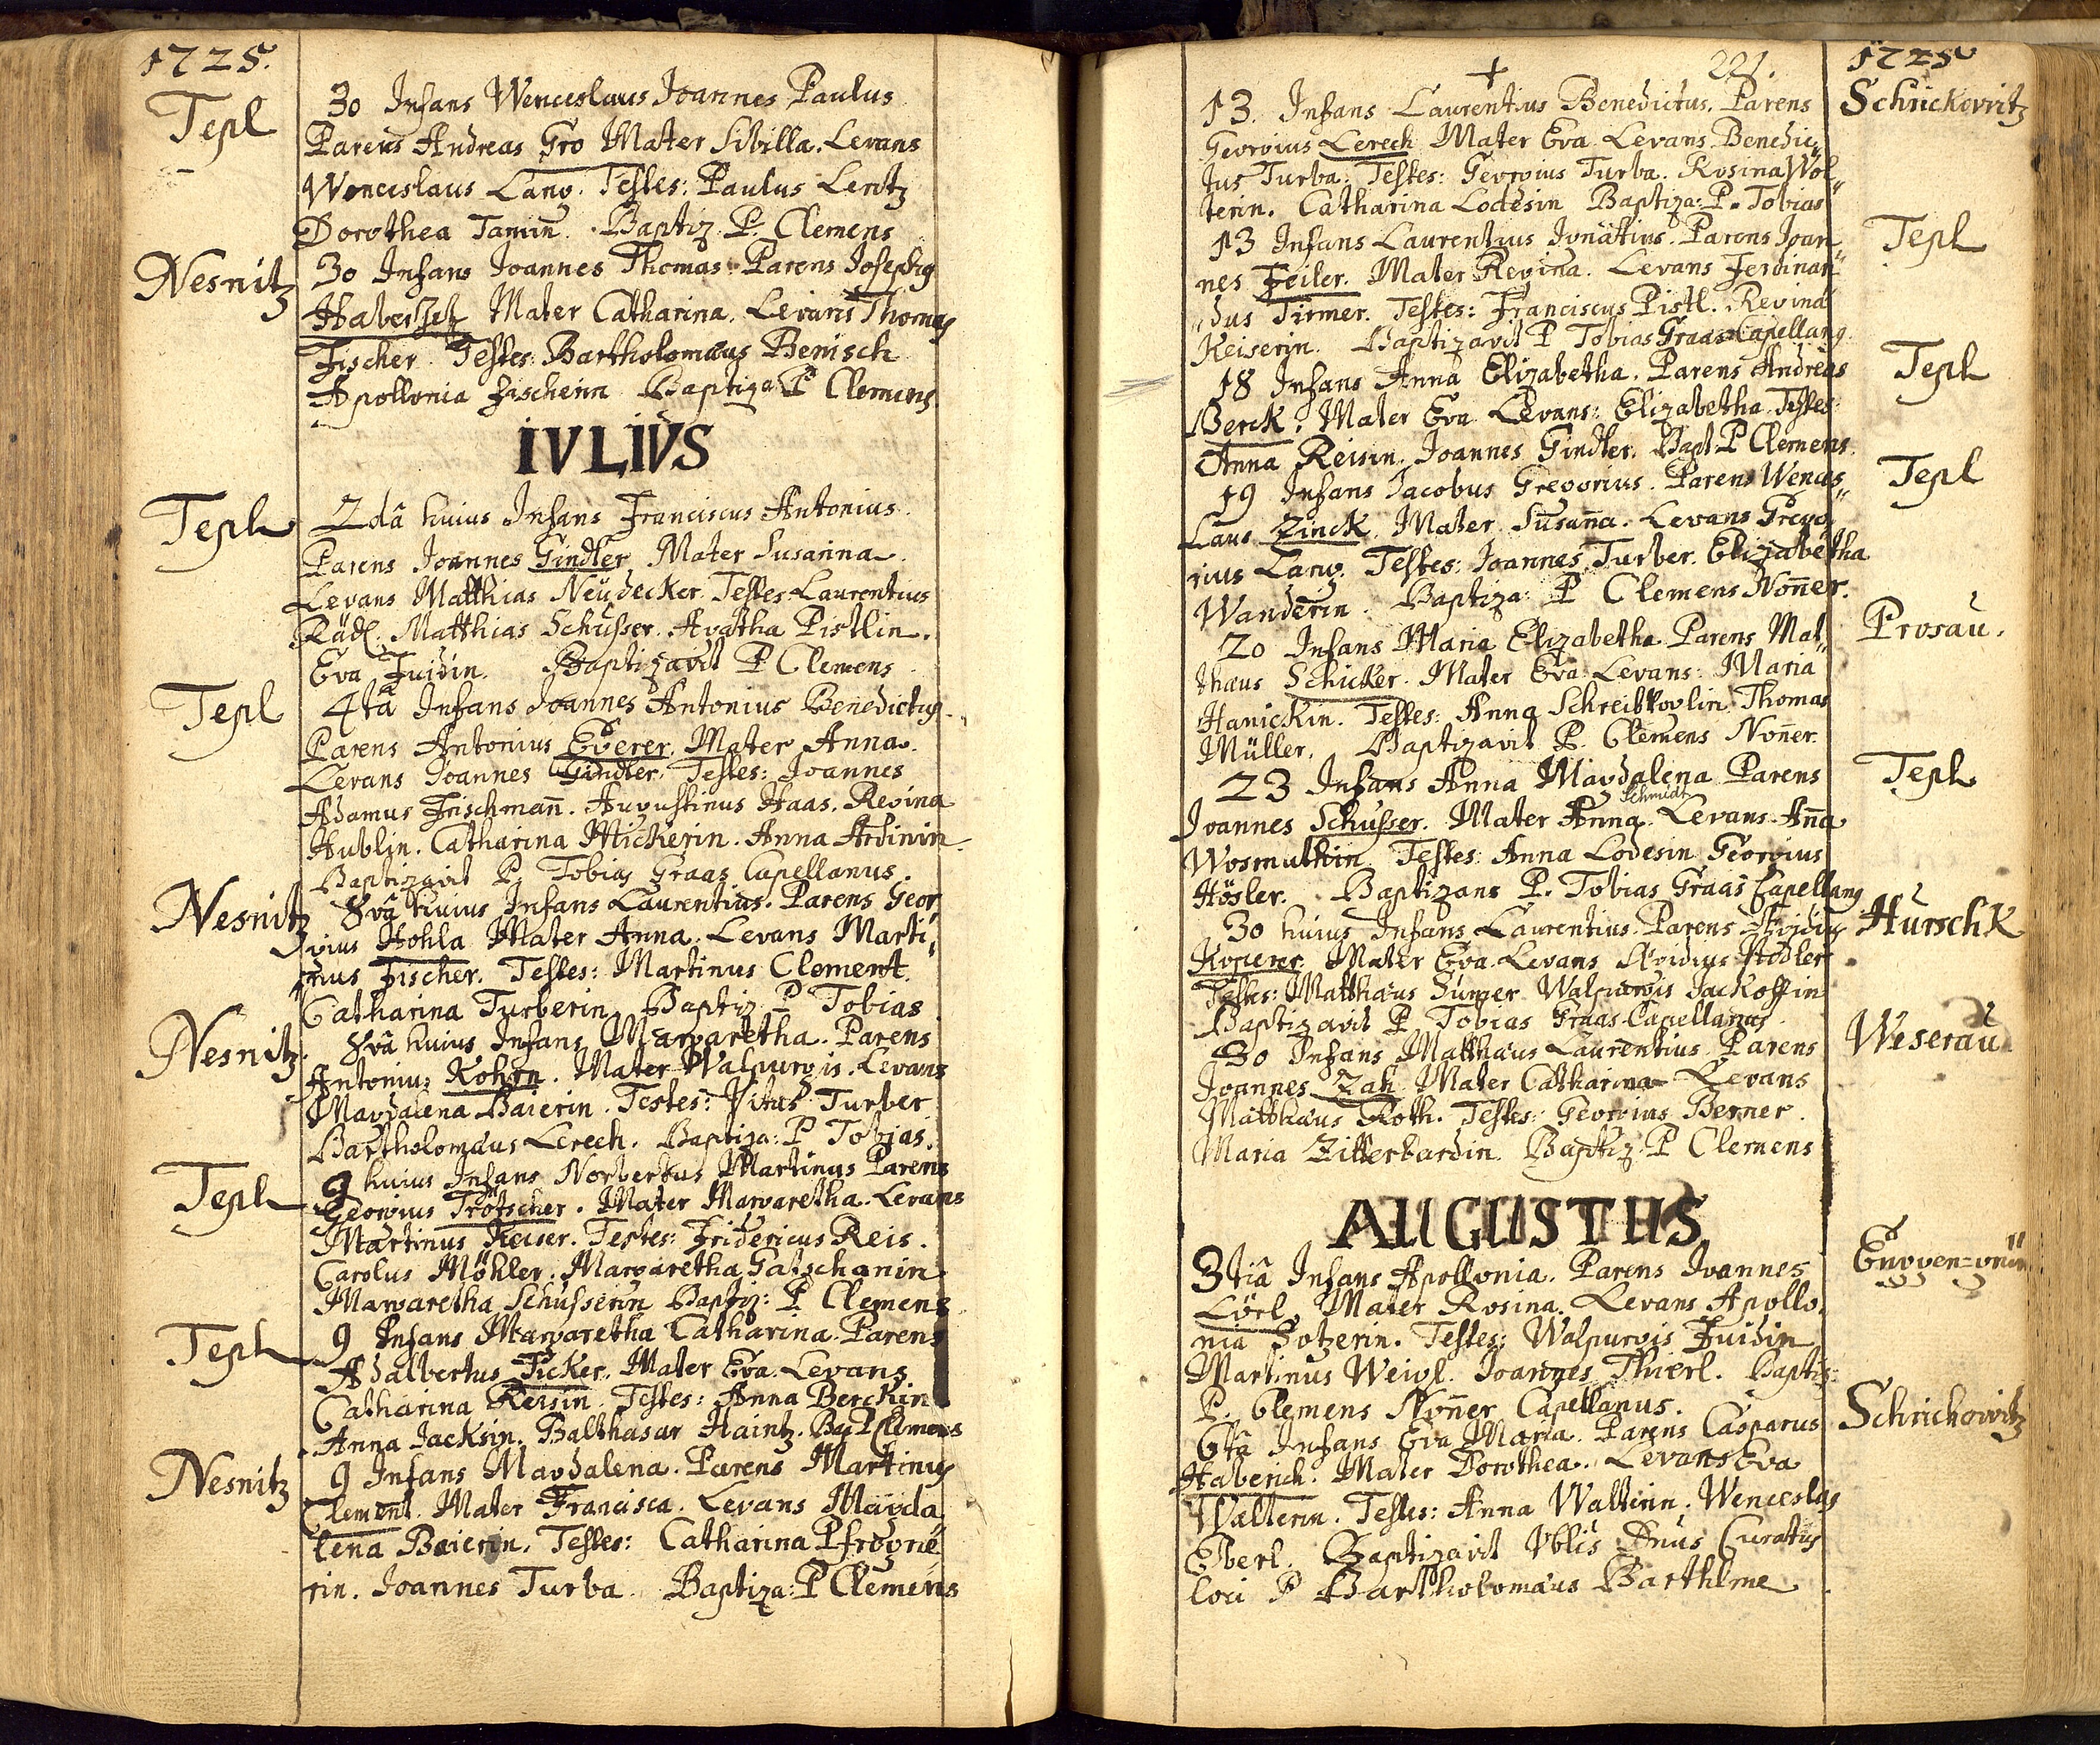 1725.
Tepl
30 Infans Wenceslaus Joannes Paulus
Parens Andreas Gro Mater Sibilla. Levans
Wenceslaus Lang. Testes: Paulus Lentz
Dorothea Tamin̄. Baptiz. P. Clemens
Nesnitz
30 Infans Joannes Thomas. Parens Josephg
Haberzetz Mater Catharina. Levans Thomas
Fischer. Testes: Bartholomæus Benisch
Apollonia Fischerin Baptiza P Clemens
IVLIVS
Tepl
2dâ huius Infans Franciscus Antonius.
Parens Joannes Gindler Mater Susanna
Levans Matthias Neüdecker. Testes Laurentius
Rädl. Matthias Schusser. Agatha Pistlin.
Eva Fuidin. Baptizavit P Clemens
Tepl
4tâ Infans Joannes Antonius Benedictus
Parens Antonius Egerer. Mater Anna.
Levans Joannes Gindler. Testes: Joannes
Adamus Fischman̄. Augustinus Haas. Regina
Hublin. Catharina Mickerin. Anna Ardinin
Baptizavit P. Tobias Graas Capellanus.
Nesnitz
8vâ huius Infans Laurentius. Parens Geor
gius Hohla Mater Anna. Levans Marti„
„nus Fischer. Testes: Martinus Clement.
Catharina Turberin Baptiz P Tobias
Nesnitz.
8vâ huius Infans Margaretha. Parens
Antonius Kohrn. Mater Walpurgis. Levans
Magdalena Baierin. Testes: Vitus Turber
Bartholomäus Lerech. Baptiza: P Tobias.
Tepl
9 huius Infans Norbertus Martinus Parens
Georgius Trötscher. Mater Margaretha. Levans
Martinus Keiser. Testes: Fridericus Reis.
Carolus Möhler. Margaretha Gatschanin
Margaretha Schusserin Baptiz: P. Clemens
Tepl
9 Infans Margaretha Catharina. Parens
Adalbertus Ficker. Mater Eva. Levans
Catharina Reisin. Testes: Anna Berckin
Anna Jacksin. Balthasar Haintz. Bap P Clemens
Nesnitz
9 Infans Magdalena. Parens Martinus
Clement. Mater Francisca. Levans Magda
lena Baierin. Testes: Catharina Pfrogne
rin. Joannes Turba. Baptiza: P Clemens
221.
1725
Schrickowitz
13. Infans Laurentius Benedictus. Parens
Georgius Lerech Mater Eva. Levans Benedic„
tus Turba. Testes: Georgius Turba. Rosina Wol„
terin. Catharina Lodesin Baptiza: P. Tobias
Tepl
13 Infans Laurentius Ignatius. Parens Joan
nes Feiler. Mater Regina. Levans Ferdinan„
„dus Tirmer. Testes: Franciscus Pistl. Regina
Keiserin. Baptizavit P Tobias Graas Capellang
Tepl
18 Infans Anna Elizabetha. Parens Andreas
Berck. Mater Eva. Levans: Elizabetha. Testes
Anna Reisin. Joannes Gindler. Bapt P Clemens.
Tepl
19 Infans Jacobus Gregorius. Parens Wences„
Laus Zinck. Mater Susan̄a. Levans Grego„
rius Lang. Testes: Joannes Turber. Elizabetha
Wanderin. Baptiza: P Clemens Non̄er.
Prosau.
20 Infans Maria Elizabetha. Parens Mat„
thæus Schicker. Mater Eva. Levans: Maria
Hanickin. Testes: Anna Schreitkoglin. Thomas
Müller. Baptizavit P. Clemens Non̄er.
Tepl
23 Infans Anna Magdalena Parens
Schmidt
Joannes Schusser. Mater Anna. Levans An̄a
Wosmuthin. Testes: Anna Lodesin Georgius
Hösler. Baptizans P. Tobias Graas Capellang
Hurschk
30 huius Infans Laurentius. Parens Ægidius
Koperer. Mater Eva. Levans Ægidius Hodler
Testes: Matthæus Sumer Walpurgis Jackoffin
Baptizavit P. Tobias Graas Capellanus.
Weserau
30 Infans Matthæus Laurentius. Parens
Joannes Zah. Mater Catharina. Levans
Matthæus Roth. Testes: Georgius Berner.
Maria Zitterbardin. Baptiz: P Clemens
AUGUSTUS
Enggen=grün
3tiâ Infans Apollonia. Parens Joannes
Lörl. Mater Rosina. Levans Apollo„
nia Sotzerin. Testes: Walpurgis Fuidin
Martinus Weigl. Joannes Thierl. Baptiz:
P. Clemens Non̄er Capellanus.
Schrickowitz
6tâ Infans Eva Maria. Parens Casparus
Haberich. Mater Dorothea. Levans Eva
Walterin. Testes: Anna Walterin. Wenceslas
Eberl. Baptizavit Dnus Curatus
loci P Bartholomæus Barthlme